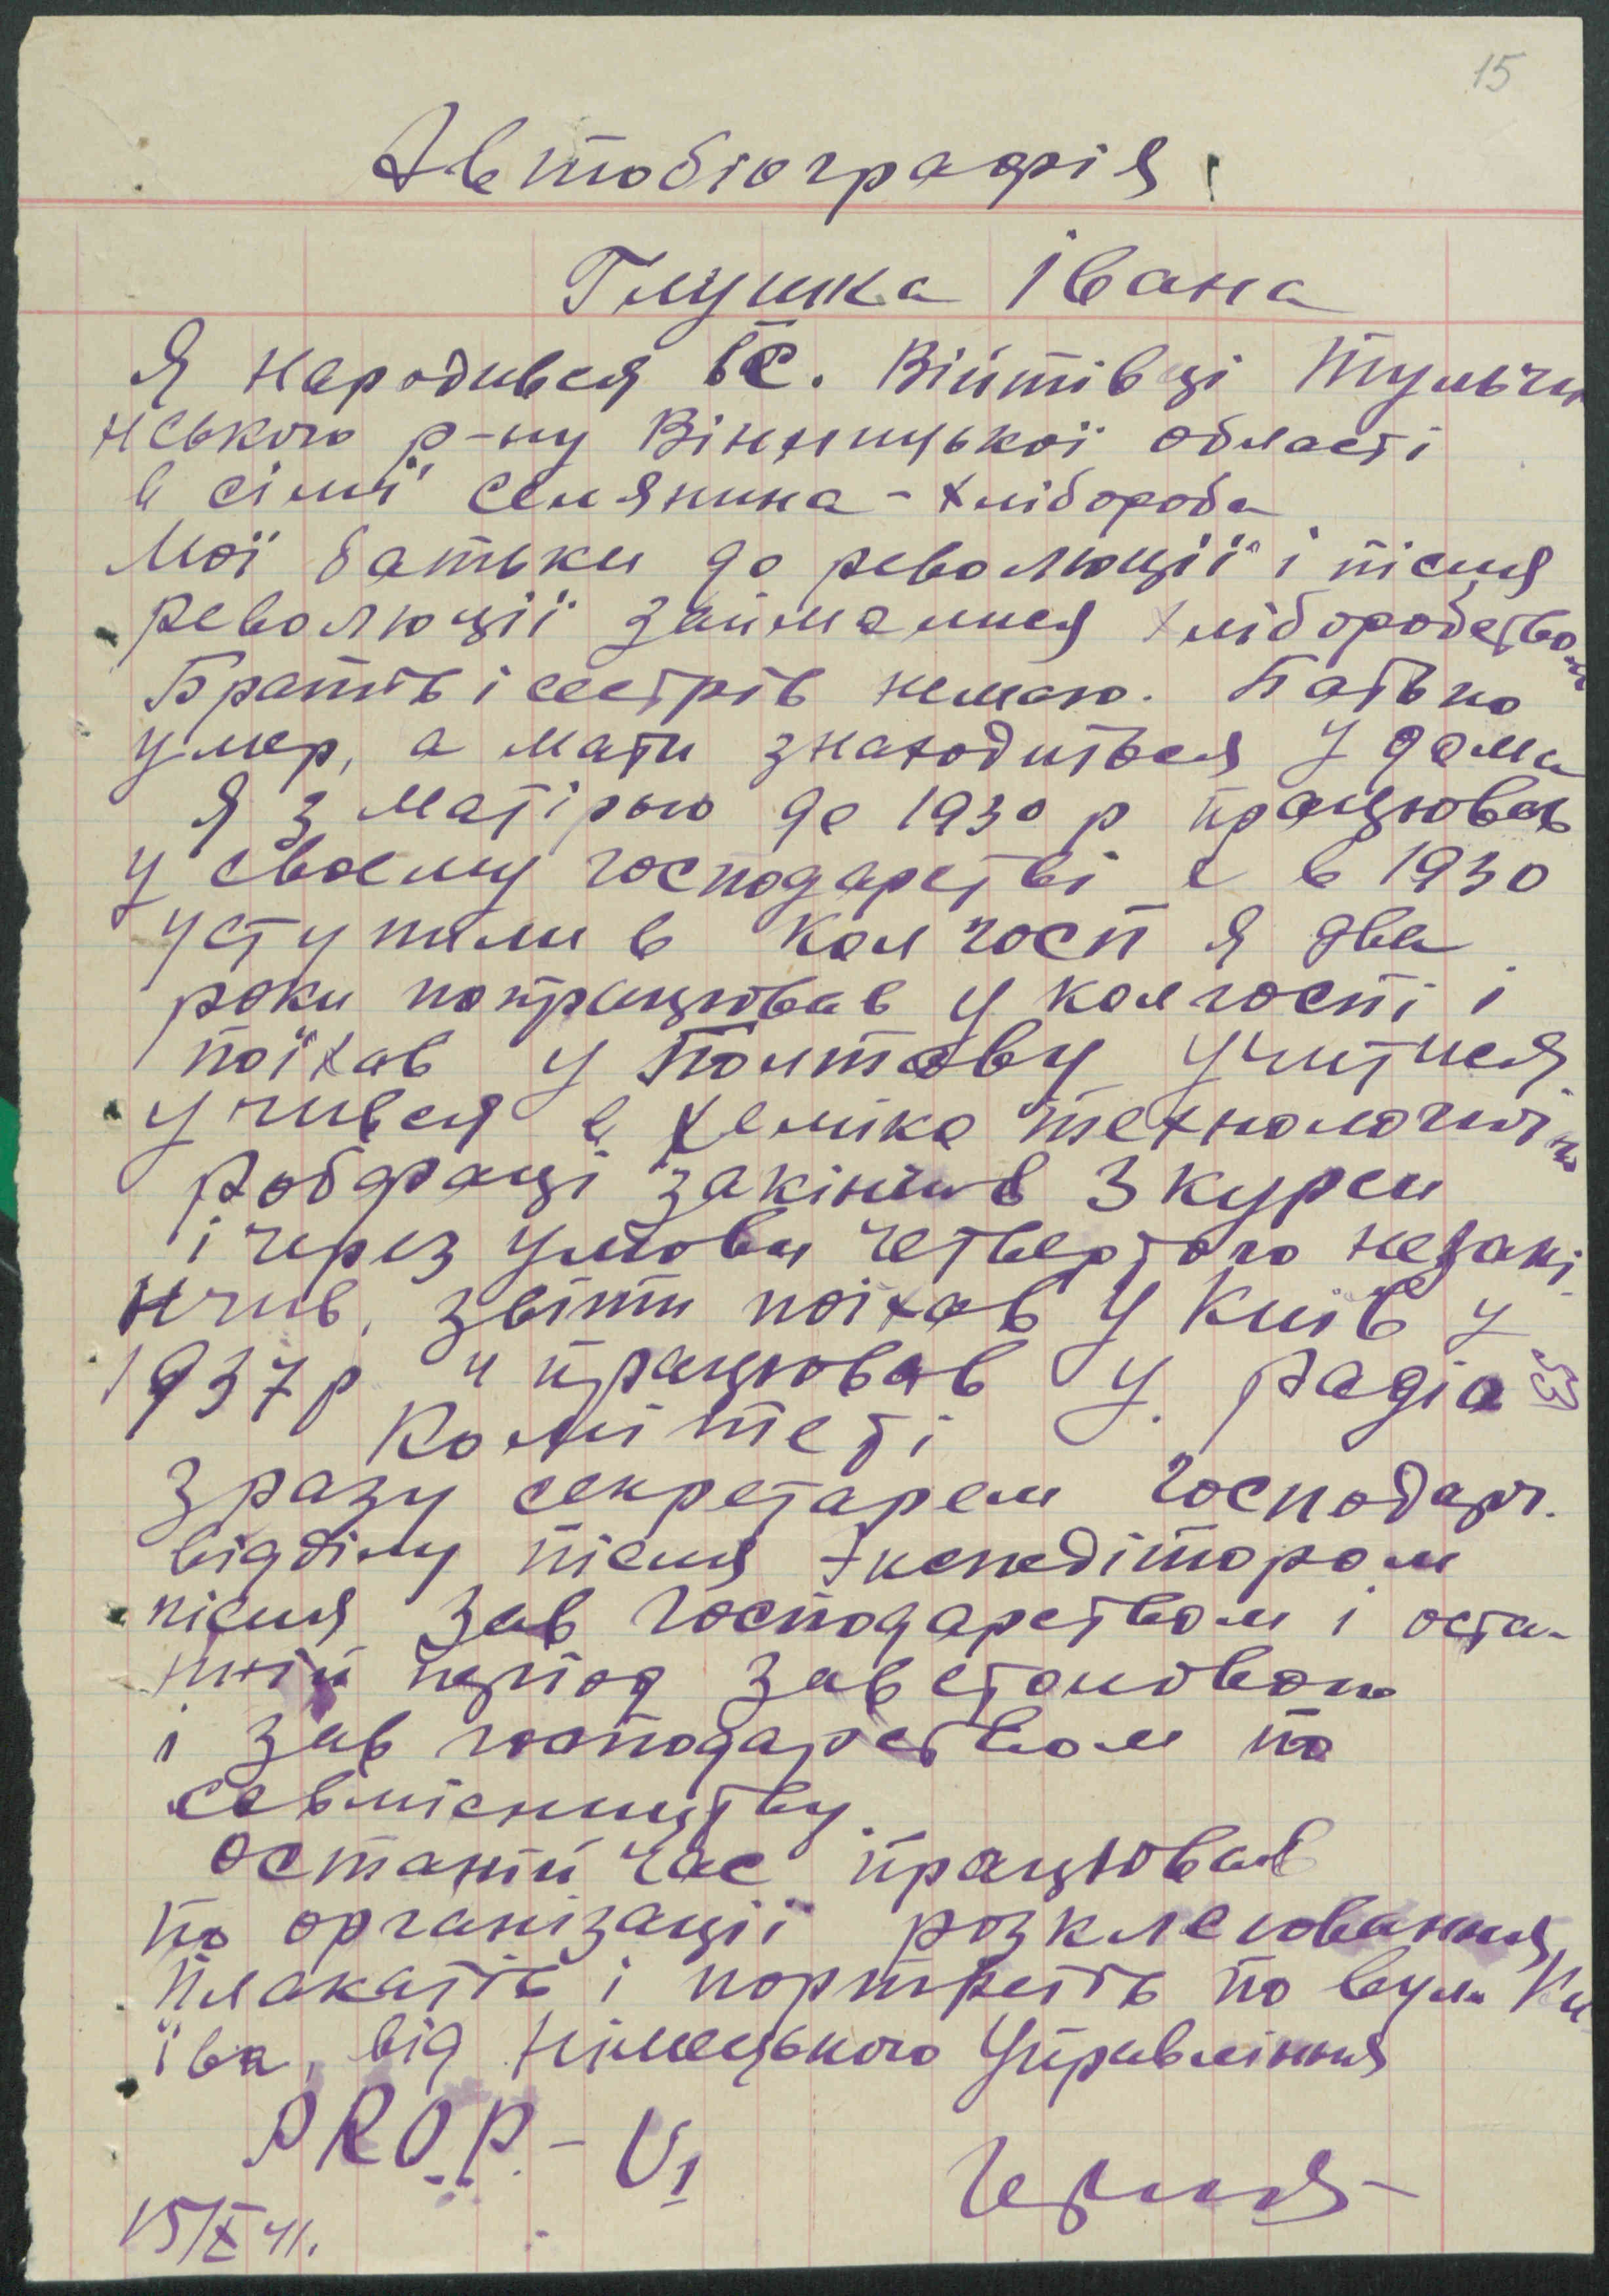 15
Автобіографія
Глушка Івана
Я народився в с. Війтівці Тульчи
нського р-ну Вінницької області
в сімї селянина - хлібороба
Мої батьки до революції і після
революції займалися хліборобством
Братів і сестрів немаю. Батько
умер, а мати знаходиться у дома
Я з матірью до 1930 р працював
у своєму господарстві а в 1930
уступили в колгосп я два
роки попрацював у колгоспі і
поїхав у Полтаву учитися
учився в хеміко технологічно
робфаці закінчив 3 курси
і через умови четвертого незакі
нчив, звіти поїхав у Київ у
1937 р и працював у радіо
Комітеті
зразу секретарем господарч.
відділу після экспедітором
після зав господарством і оста-
нній період зав столовою
і зав господарством по
совмісництву
останій час працював
по організації розклеювання
плакатів і портретів по вул. Ки
їва, від Німецького Управління
PROP - U1
15/X 41.